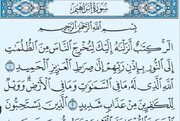 سورة ابراهيم
بسم الله الرحمن الرحيم
الر كتب أنزلنه إليك لتخرج الناس من الظلمت
إلى النور بإذن ربهم إلى صرط العزيز الحميد ١
الله الذي له ما في السموت وما في الأرض وويل
للكفرين من عذاب شديد ٢ الذين يستحبون